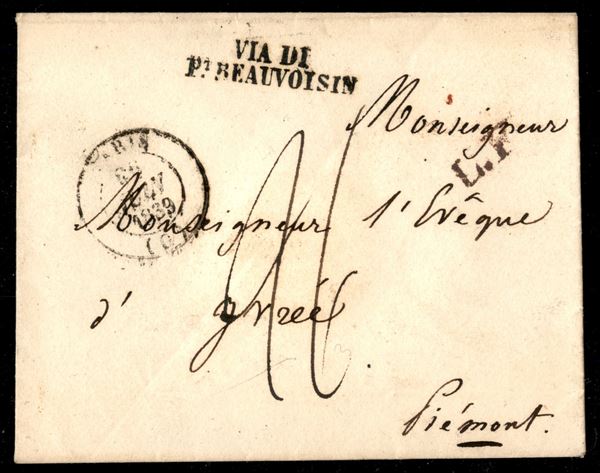 VIA DI
Pᵀ BEAUVOISIN
Monseigneur
L.F
PARIS
1839
(60)
Monseigneur l'Evêque
d' yvrée
Piémont.